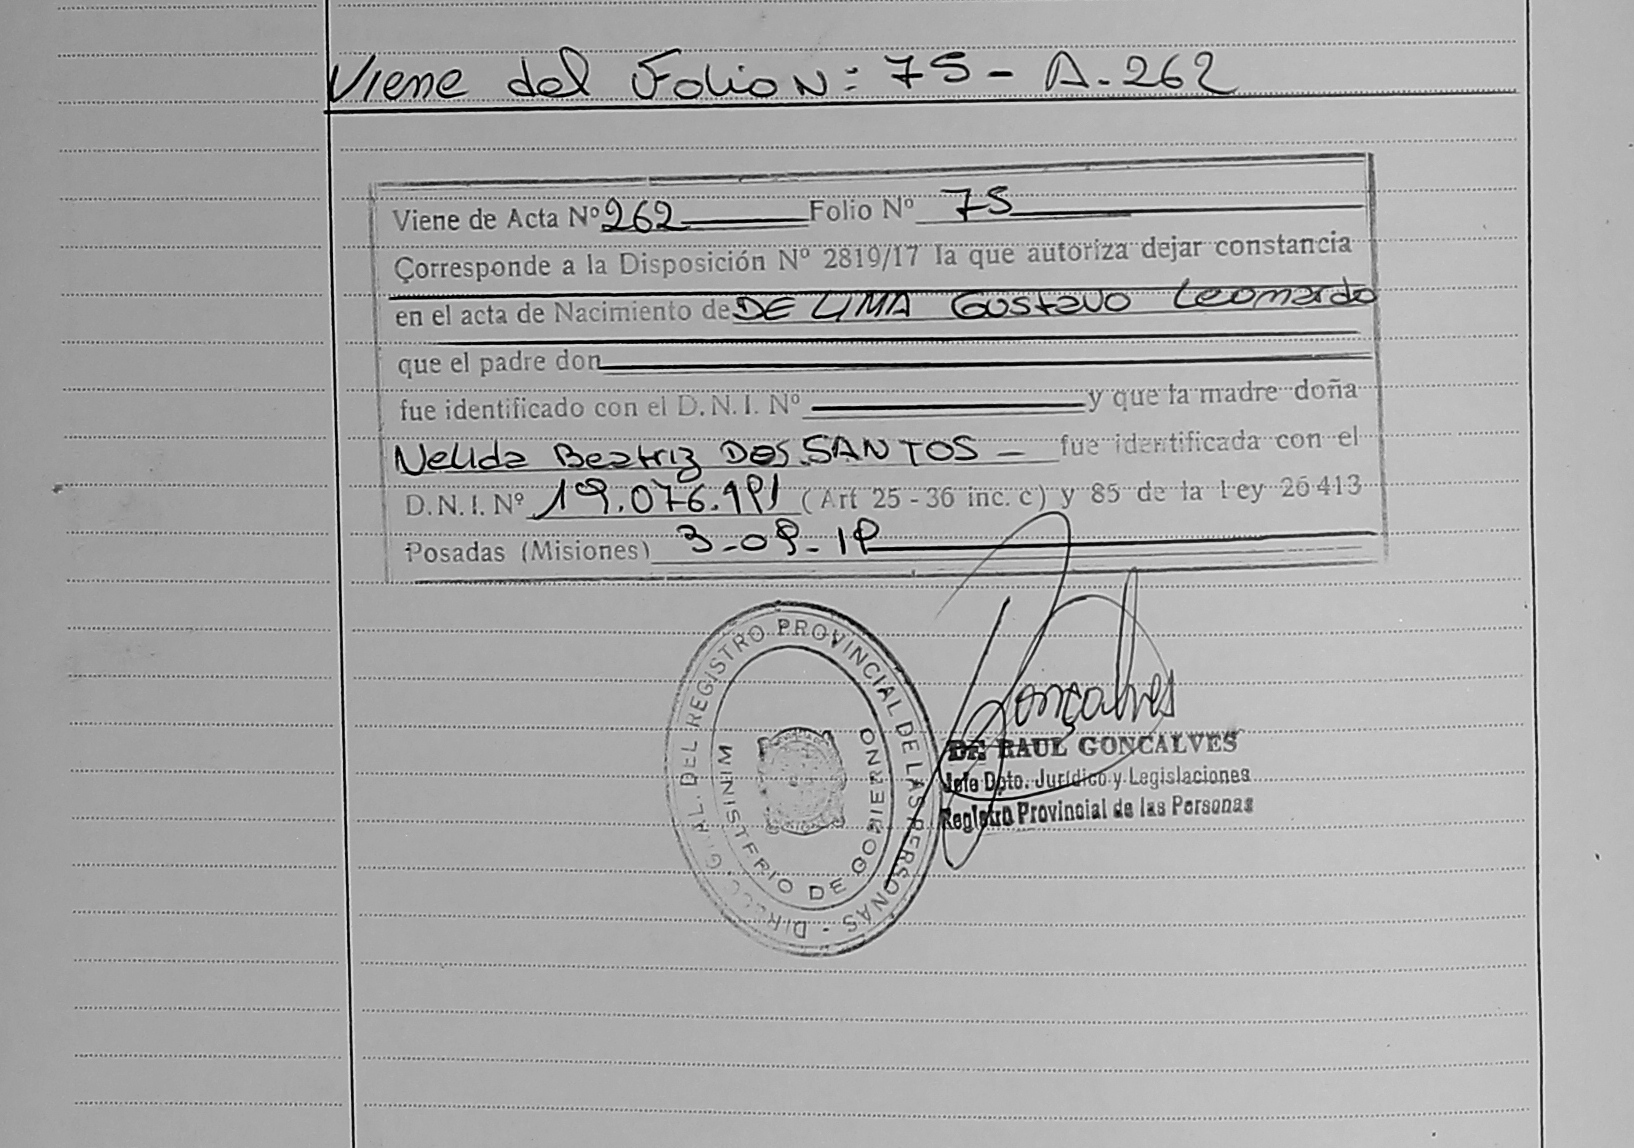 Viene del Folio N: 75 - A. 262
Viene de Acta Nº 262 Folio Nº 75
Corresponde a la Disposición Nº 2819/17 la que autoriza dejar constancia
en el acta de Nacimiento de DE LIMA Gustavo Leonardo
que el padre don
fue identificado con el D.N.I. Nº y que la madre doña
Nelida Beatriz DOS SANTOS - fue identificada con el
D.N.I. Nº (Art 25 - 36 inc. c) y 85 de la Ley 26413
Posadas (Misiones)
DIRECC. GRAL. DEL REGISTRO PROVINCIAL DE LAS PERSONAS
MINISTERIO DE GOBIERNO
Gonçalves
RAUL GONCALVES
Jefe Dpto. Jurídico y Legislaciones
Registro Provincial de las Personas